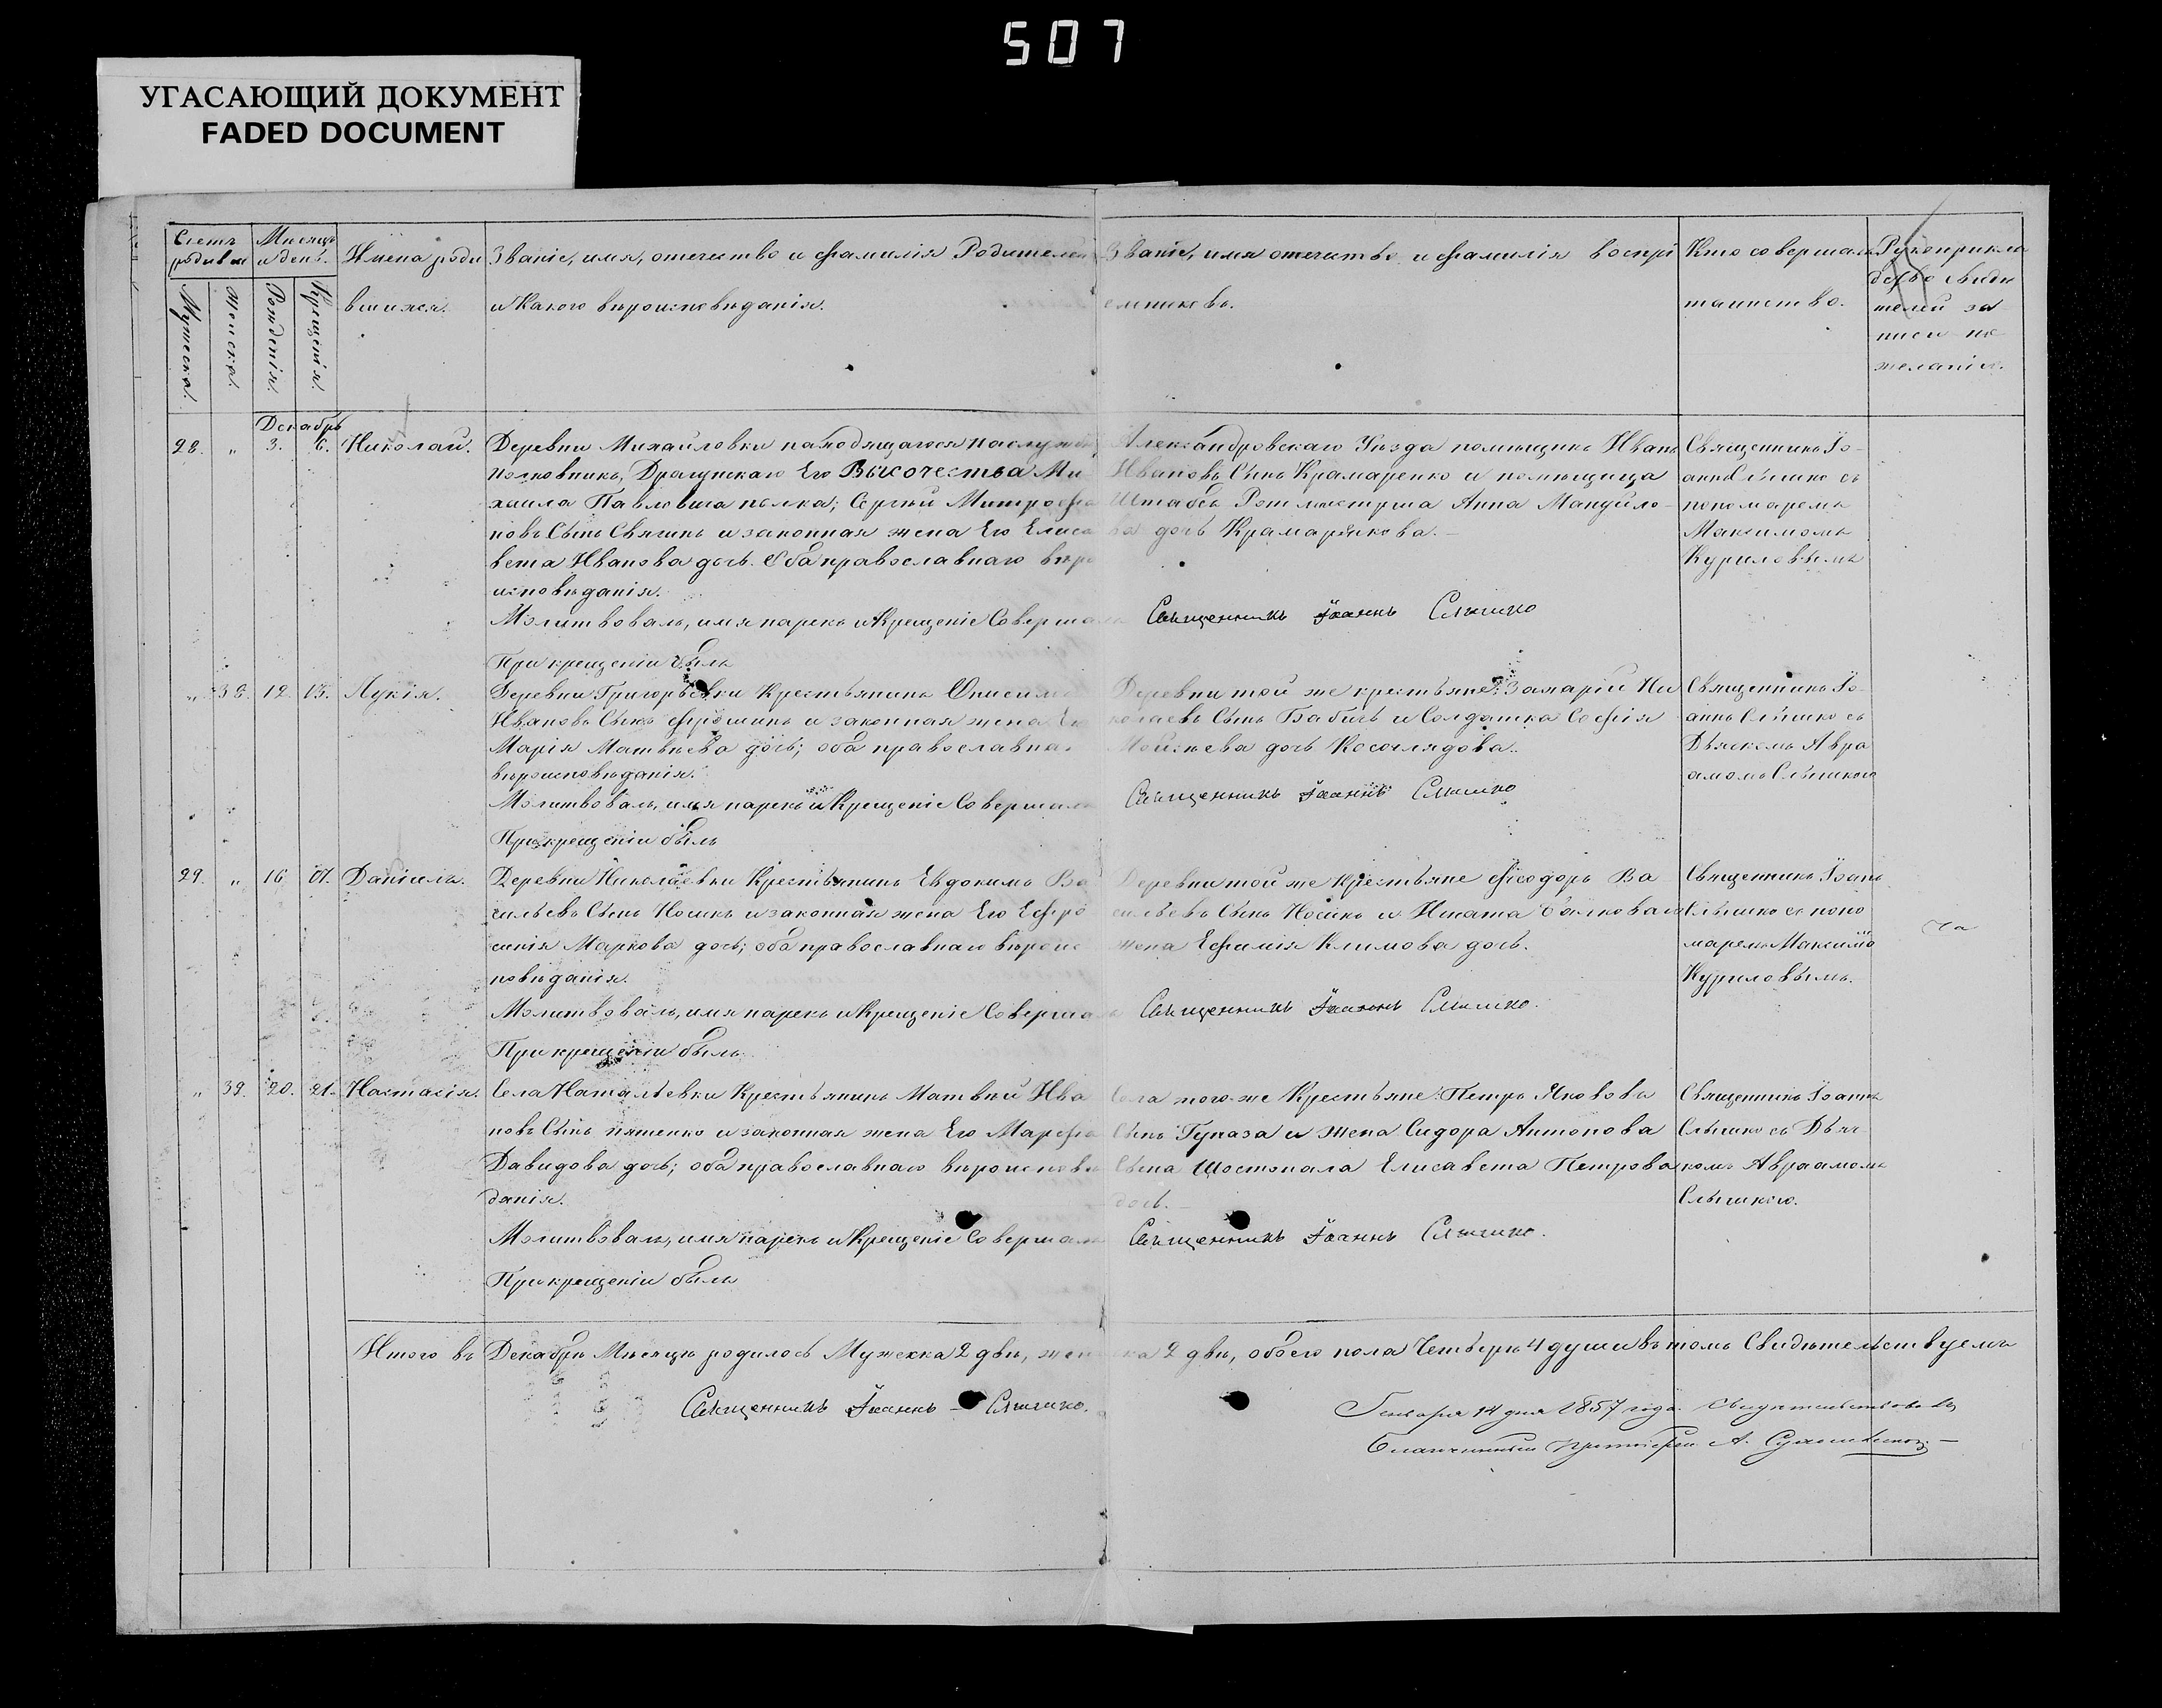 507
УГАСАЮЩИЙ ДОКУМЕНТ
FADED DOCUMENT
Счетъ родивш
Мужеска.
Женска.
Мѣсяцъ и день.
Рожденія.
Крещенія.
Имена роди
вшихся.
Званіе, имя, отечество и фамилія Родителей
и Какого вѣроисповѣданія.
Званіе, имя отечество и фамилія воспрі
емниковъ.
Кто совершалъ
таинство.
Рукоприкла
дство свидѣ
телей за
писи по
желанію.
Декабрь
28. „ 3. 6. Николай.
Деревни Михайловки находящагося на службѣ
Полковникъ, Драгунскаго Его Высочества Ми
хаила Павловича полка; Сергѣй Митрофа
новъ Сынъ Свягинъ и законная жена Его Елиса
вета Иванова дочь. Оба православнаго вѣро
исповѣданія.
Молитвовалъ, имя нарекъ и Крещеніе Совершалъ
При крещеніи былъ
Александровскаго Уѣзда помѣщикъ Иванъ
Ивановъ Сынъ Крамаренко и помѣщица
Штабсъ Ротмистрша Анна Мануйло
ва дочь Крамаренкова.
Священникъ Іоаннъ Слышко
Священникъ Іо
аннъ Слышко съ
пономаремъ
Максимомъ
Куриловымъ
„ 38. 12. 13. Лукія.
Деревни Григорьевки Крестьянинъ Онисимъ
Ивановъ Сынъ Ярошинъ и законная жена Его
Марія Матвѣева дочь; оба православнаго
вѣроисповѣданія.
Молитвовалъ, имя нарекъ и Крещеніе Совершалъ
При крещеніи былъ
Деревни той же крестьяне: Захарій Ни
колаевъ Сынъ Бабичъ и Солдатка Софія
Мойсѣева дочь Косоглядова.
Священникъ Іоаннъ Слышко
Священникъ Іо
аннъ Слышко съ
Дьячкомъ Авра
амомъ Слышкого
29. „ 16. 17. Даніилъ.
Деревни Николаевки Крестьянинъ Евдокимъ Ва
сильевъ Сынъ Носикъ и законная жена Его Ефро
синія Маркова дочь; оба православнаго вѣроис
повѣданія.
Молитвовалъ, имя нарекъ и Крещеніе Совершалъ
При крещеніи былъ
Деревни той же Крестьяне Феодоръ Ва
сильевъ Сынъ Носикъ и Игната
жена Ефимія Климова дочь.
Священникъ Іоаннъ Слышко.
Священникъ Іоаннъ
Слышко съ поно
маремъ Максимо
Куриловымъ.
„ 39. 20. 21. Настасія.
Села Наталѣевки Крестьянинъ Матвѣй Ива
новъ Сынъ пятенко и законная жена Его Марфа
Давидова дочь; оба православнаго вѣроисповѣ
данія.
Молитвовалъ, имя нарекъ и Крещеніе Совершалъ
При крещеніи былъ
Села того-же Крестьяне: Петръ Якововъ
Сынъ Гуназа и жена Сидора Антонова
Сына Шостопала Елисавета Петрова
дочь.
Священникъ Іоаннъ Слышко.
Священникъ Іоаннъ
Слышко съ Дьяч
комъ Авраамомъ
Слышкого.
Итого въ Декабрѣ Мѣсяцѣ родилось Мужеска 2 двѣ, женска 2 двѣ, обоего пола Четверо 4 души въ томъ Свидѣтельствуемъ
Священникъ Іоаннъ Слышко.
Генваря 14 дня 1857 года. Свидѣтельствовалъ
Благочинный протоіерей А.